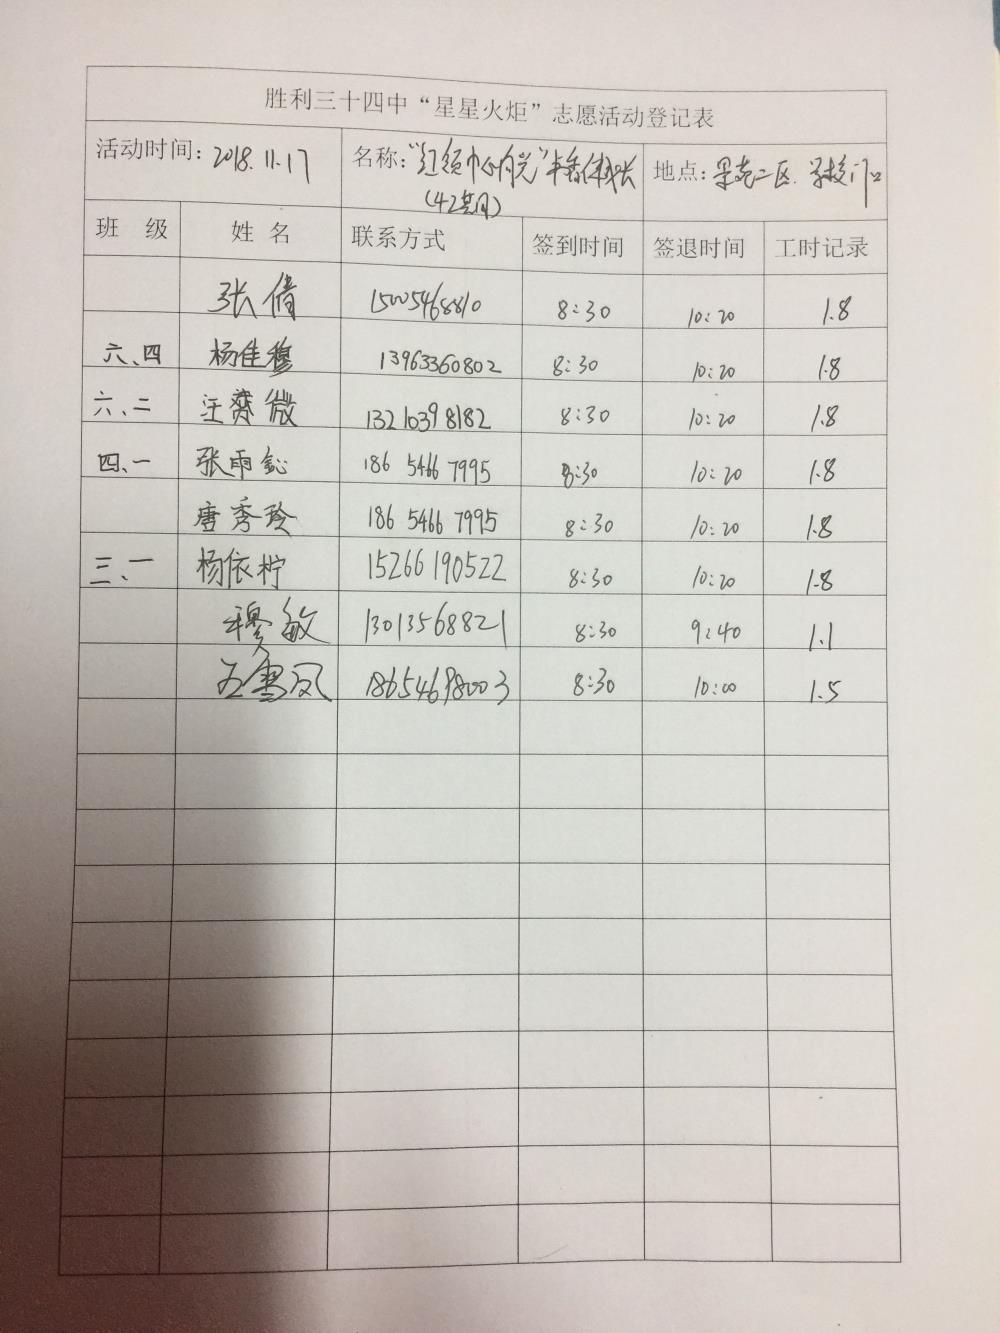 胜利三十四中“星星火炬”志愿活动登记表
活动时间：2018.11.17 名称：“红领巾心向党” 地点：景苑二区.学校门口
(42共同)
班 级 姓 名 联系方式 签到时间 签退时间 工时记录
张倩 15005468810 8:30 10:20 1.8
六、四 杨佳穆 13963360802 8:30 10:20 1.8
六、二 汪赟微 13210398182 8:30 10:20 1.8
四、一 张雨 186 5466 7995 8:30 10:20 1.8
唐秀玲 186 5466 7995 8:30 10:20 1.8
三、一 杨依柠 15266190522 8:30 10:20 1.8
穆敏 13013568821 8:30 9:40 1.1
王雪凤 18654698003 8:30 10:00 1.5